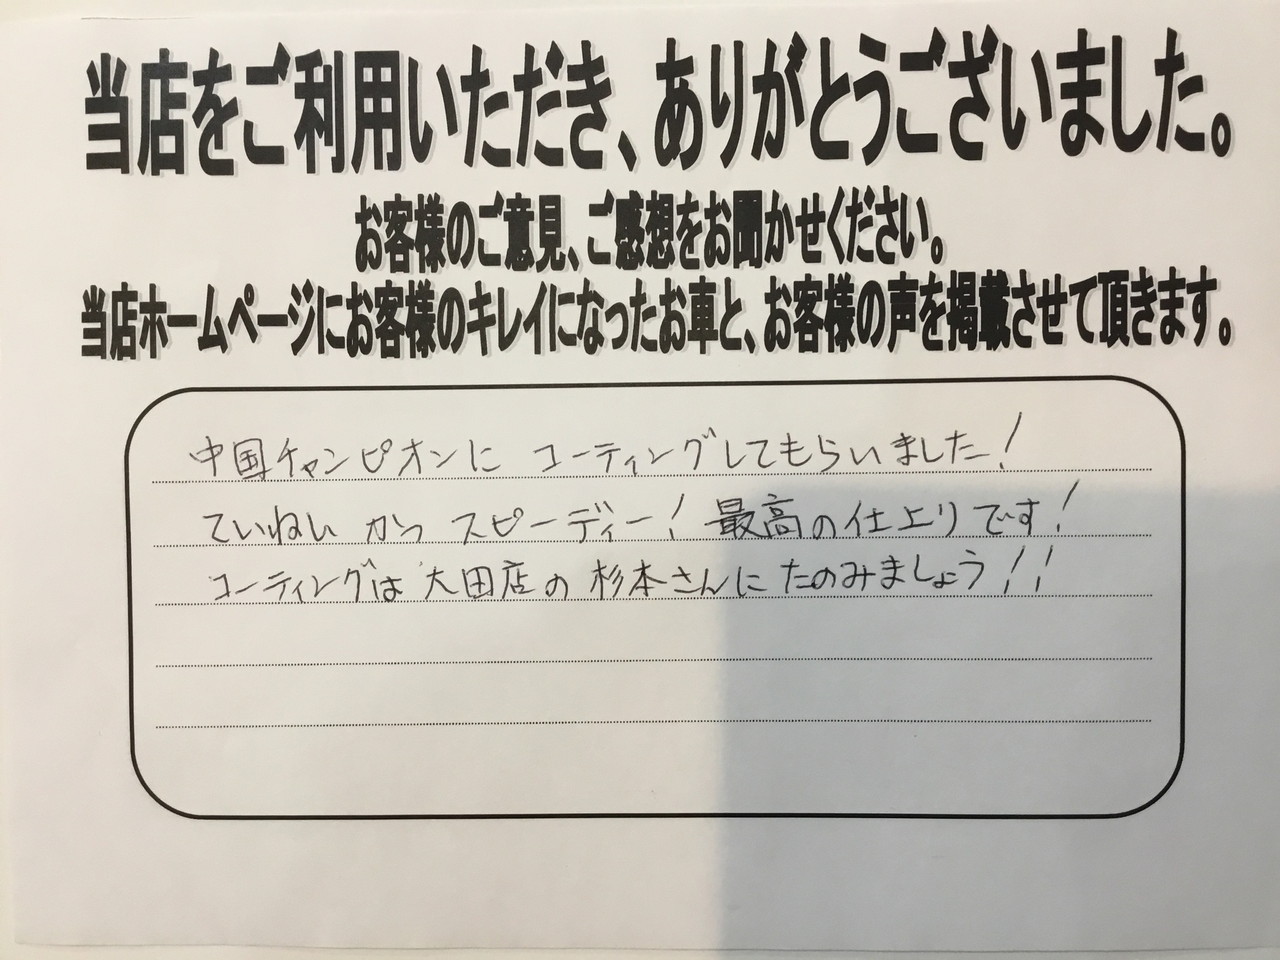 当店をご利用いただき、ありがとうございました。
お客様のご意見、ご感想をお聞かせください。
当店ホームページにお客様のキレイになったお車と、お客様の声を掲載させて頂きます。
中国チャンピオンに コーティングしてもらいました!
ていねい かつ スピーディー! 最高の仕上りです!
コーティングは 大田店の 杉本さんに たのみましょう!!